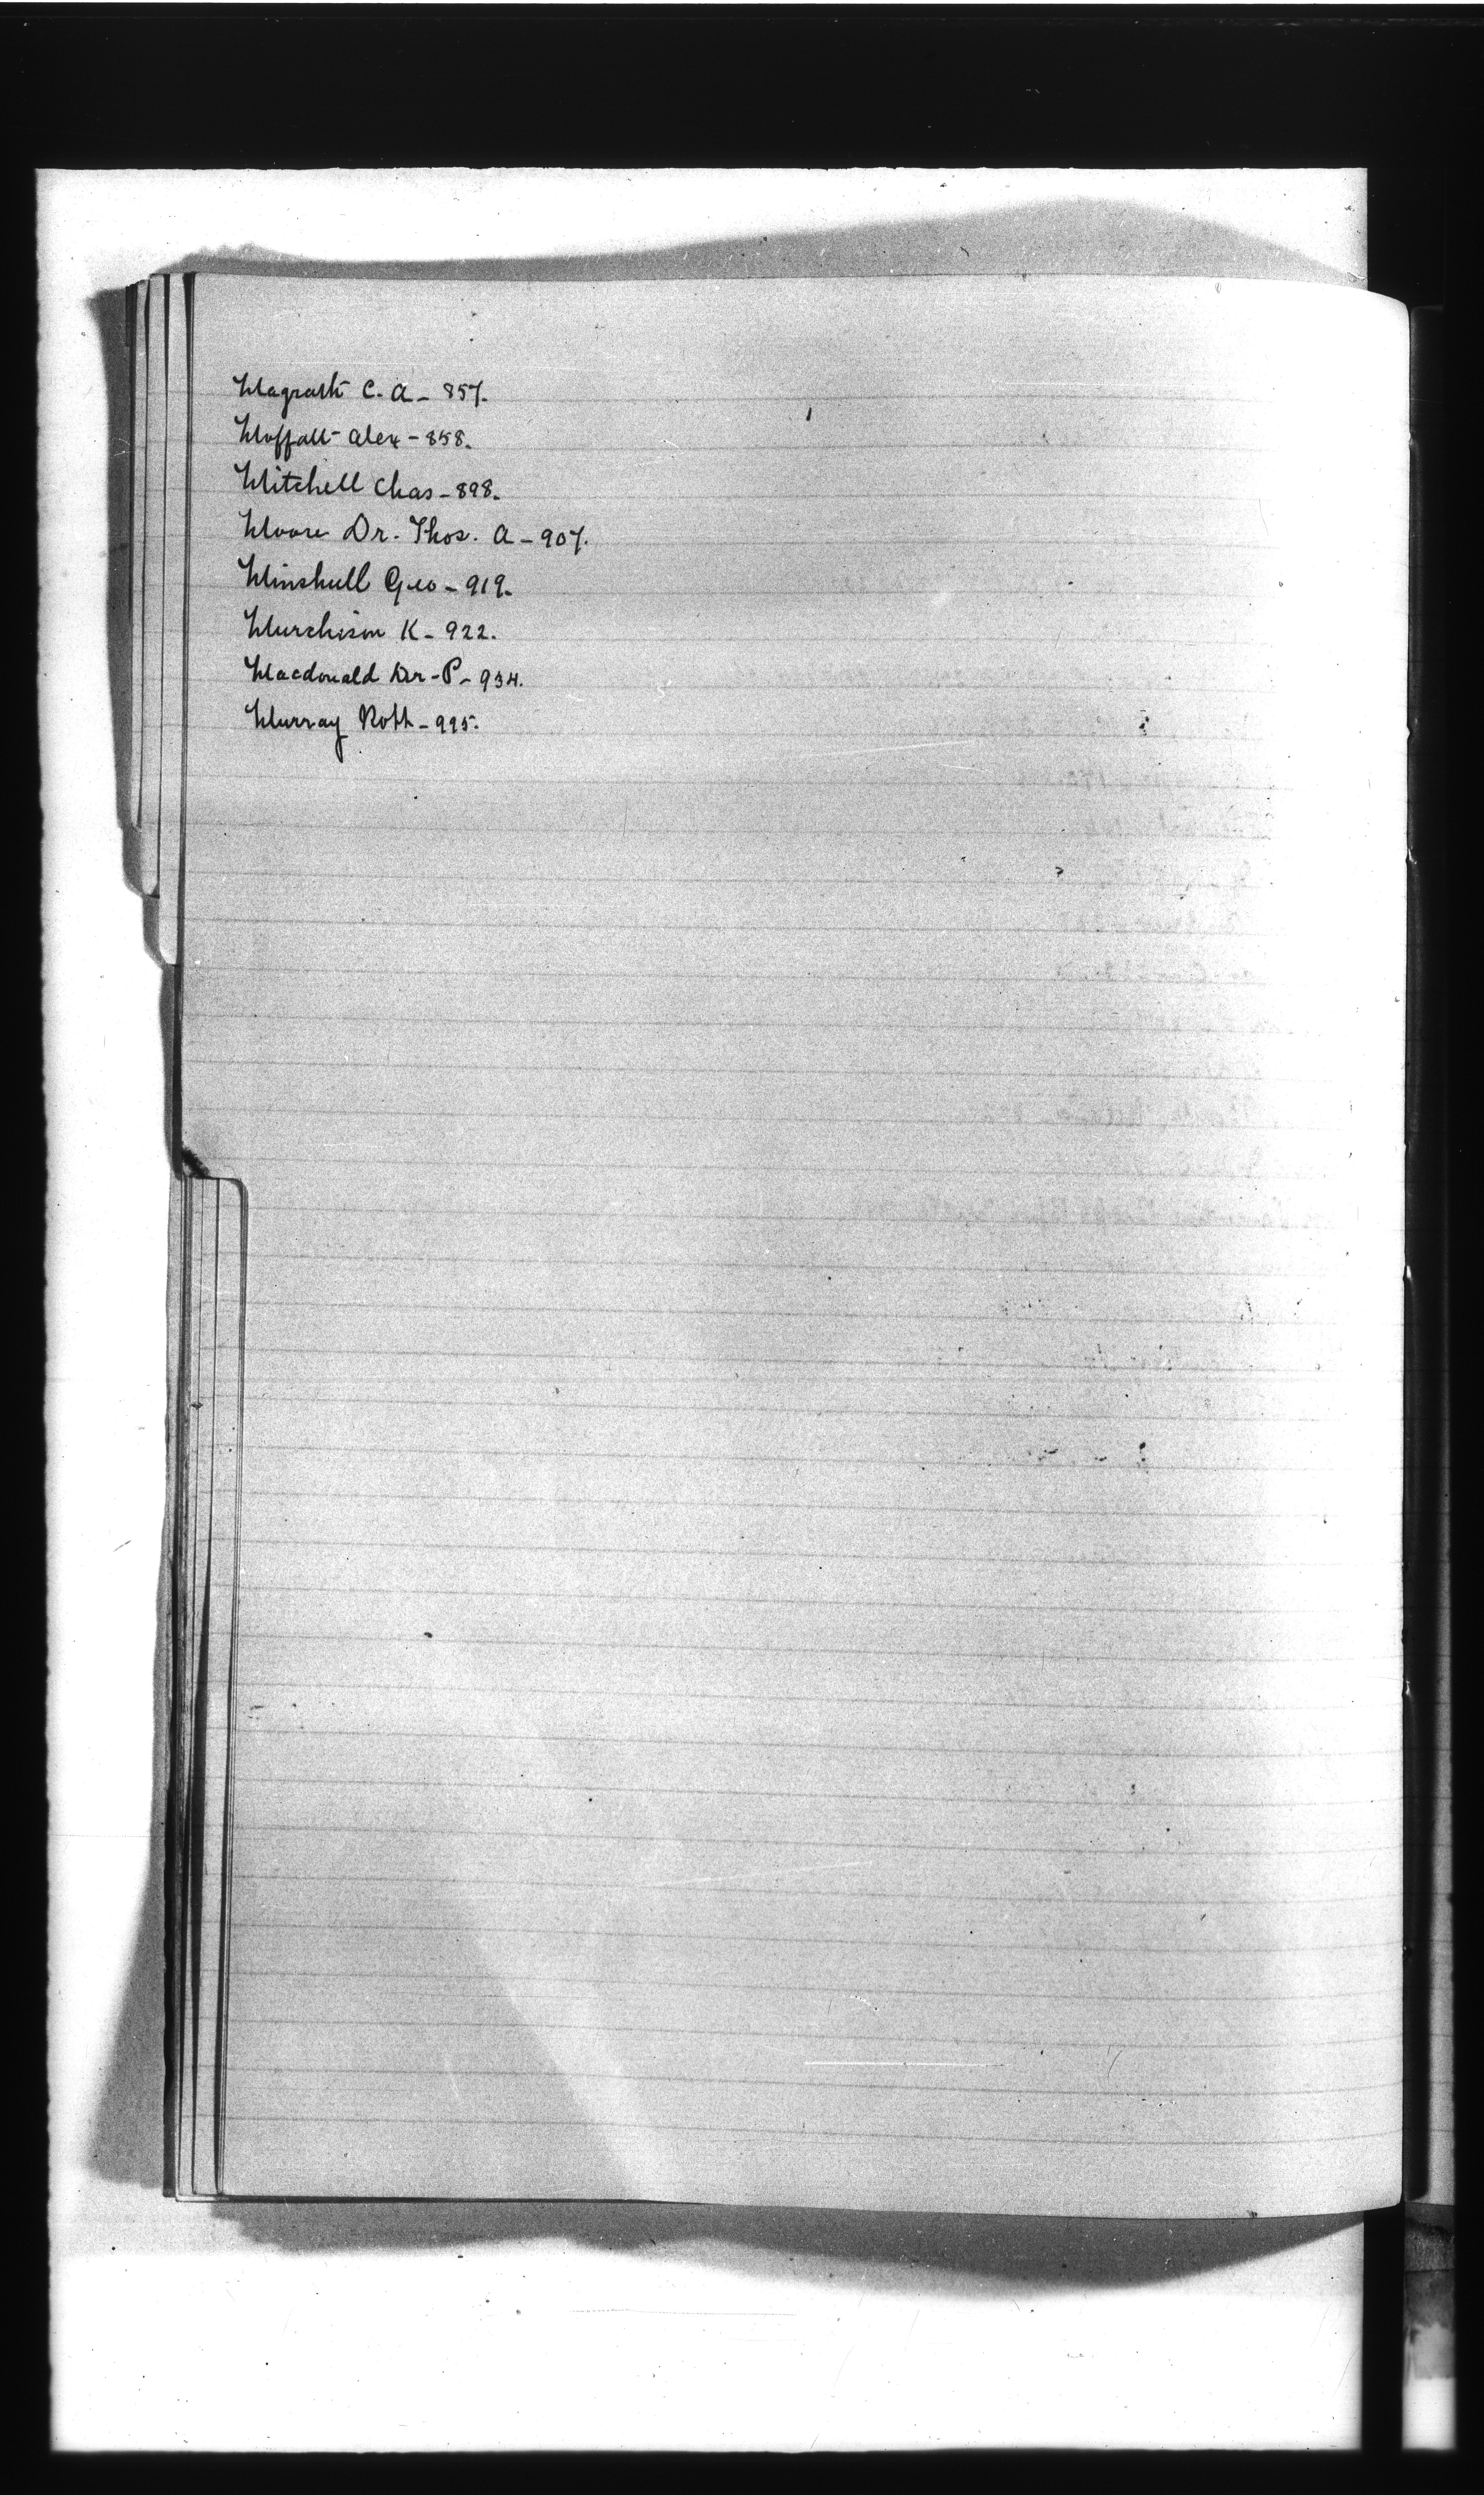 Magrath C. A - 857.
Moffatt Alex - 858.
Mitchell Chas - 898.
Moore Dr. Thos. A - 907.
Minshull Geo - 919.
Murchison K - 922.
Macdonald Dr - P - 934.
Murray Robt - 995.